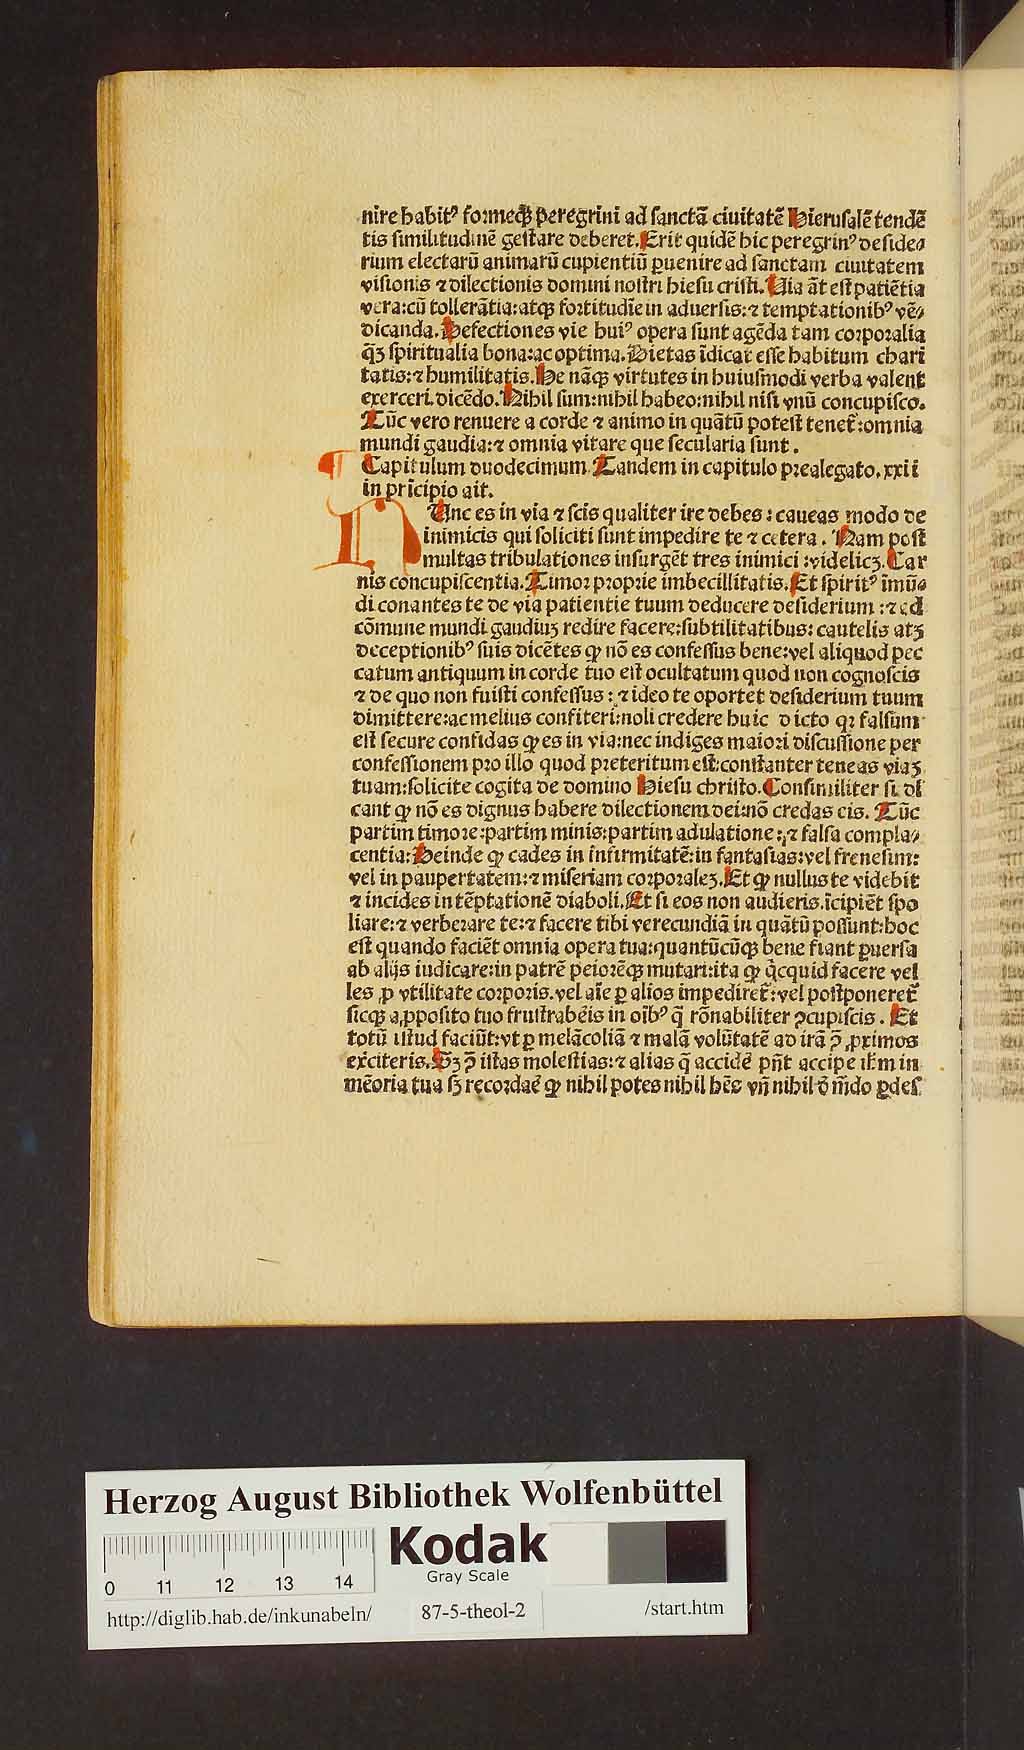 nire habitꝰ formeqꝫ peregrini ad sanctā ciuitatē Hierusalē tendē
tis similitudinē gestare deberet. Erit quidē hic peregrinꝰ deside⸗
rium electarū animarū cupientiū ꝑuenire ad sanctam ciuitatem
visionis ⁊ dilectionis domini nostri hiesu cristi. Uia āt est patiētia
vera: cū tollerātia: atqꝫ fortitudīe in aduersis: ⁊ temptationibꝰ vē⸗
dicanda. Defectiones vie huiꝰ opera sunt agēda tam corporalia
q̄ꝫ spiritualia bona: ac optima. Pietas īdicat esse habitum chari
tatis: ⁊ humilitatis. He nāqꝫ virtutes in huiusmodi verba valent
exerceri. dicēdo. Nihil sum: nihil habeo: nihil nisi vnū concupisco.
Tūc vero renuere a corde ⁊ animo in quātū potest tenet̄: omnia
mundi gaudia: ⁊ omnia vitare que secularia sunt.
Capitulum duodecimum Tandem in capitulo prealegato. xxii
in prīcipio ait.
NUnc es in via ⁊ scis qualiter ire debes: caueas modo de
inimicis qui soliciti sunt impedire te ⁊ cetera. Nam post
multas tribulationes insurgēt tres inimici: videlicꝫ. Car
nis concupiscentia. Timor proprie imbecillitatis. Et spiritꝰ īmū⸗
di conantes te de via patientie tuum deducere desiderium: ⁊ ad
cōmune mundi gaudiuꝫ redire facere: subtilitatibus: cautelis atꝫ
deceptionibꝰ suis dicētes ꝙ nō es confessus bene: vel aliquod pec
catum antiquum in corde tuo est ocultatum quod non cognoscis
⁊ de quo non fuisti confessus: ⁊ ideo te oportet desiderium tuum
dimittere: ac melius confiteri: noli credere huic dicto qꝛ falsum
est secure confidas ꝙ es in via: nec indiges maiori discussione per
confessionem pro illo quod preteritum est: constanter teneas viaꝫ
tuam: solicite cogita de domino Hiesu christo. Consimiliter si di
cant ꝙ nō es dignus habere dilectionem dei: nō credas eis. Tūc
partim timore: partim minis: partim adulatione: ⁊ falsa compla⸗
centia: Deinde ꝙ cades in infirmitatē: in fantasias: vel frenesim:
vel in paupertatem: ⁊ miseriam corporaleꝫ. Et ꝙ nullus te videbit
⁊ incides in tēptationē diaboli. Et si eos non audieris. īcipiēt spo
liare: ⁊ verberare te: ⁊ facere tibi verecundiā in quātū possunt: hoc
est quando faciēt omnia opera tua: quantūcūqꝫ bene fiant ꝑuersa
ab alijs iudicare: in patrē peiorēqꝫ mutari: ita ꝙ q̇cquid facere vel
les ꝓ vtilitate corporis. vel aīe ꝑ alios impediret̄: vel postponeret̄
sicqꝫ a ꝓposito tuo frustrabēis in oībꝰ q̄ rōnabiliter ꝯcupiscis. Et
totū istud faciūt: vt ꝑ melācoliā ⁊ malā volūtatē ad irā ꝯ̄ ꝓximos
exciteris. Sꝫ ꝯ̄ istas molestias: ⁊ alias q̄ accidē pn̄t accipe itēm in
mēoria tua sꝫ recordaē ꝙ nihil potes nihil hēs vn̄ nihil ī mūdo ꝑdes
Herzog August Bibliothek Wolfenbüttel
0 11 12 13 14
Kodak
Gray Scale
http://diglib.hab.de/inkunabeln/
87-5-theol-2
/start.htm